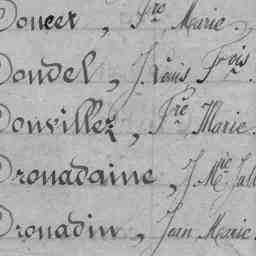 Doucet, Fre Marie.
Doudel, J. Louis Fois
Donvillez, Fre Marie.
Drouadaine, J. Mie
Drouadin, Jean Marie.